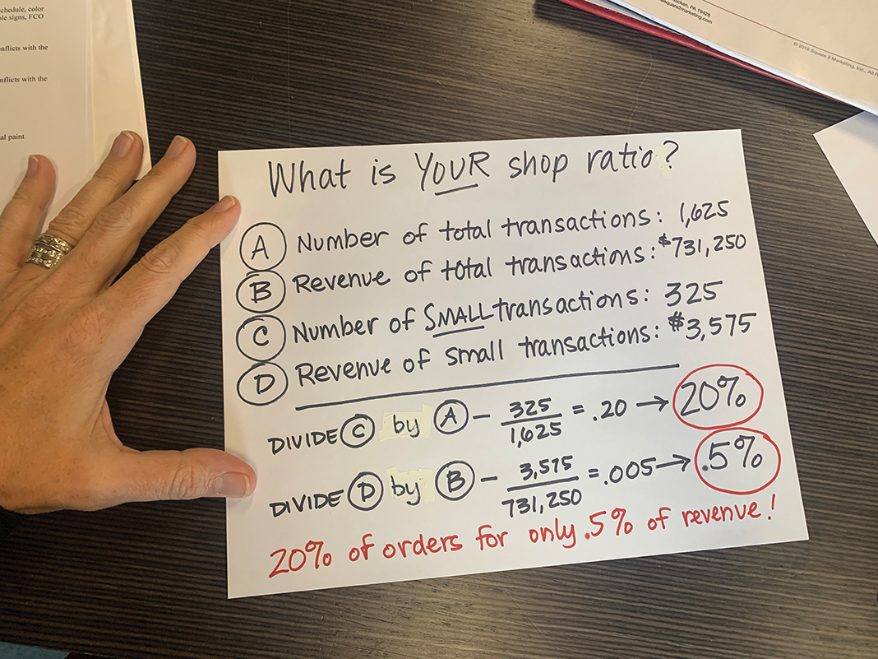 chedule, color
ic signs, FCO
nflicts with the
nflicts with the
al paint
PA 19428
© 2018 Square 2 Marketing, Inc., All R
What is YOUR shop ratio?
A Number of total transactions: 1,625
B Revenue of total transactions: $731,250
C Number of SMALL transactions: 325
D Revenue of small transactions: $3,575
DIVIDE C by A - 325/1,625 = .20 → 20%
DIVIDE D by B - 3,575/731,250 = .005 → .5%
20% of orders for only .5% of revenue!